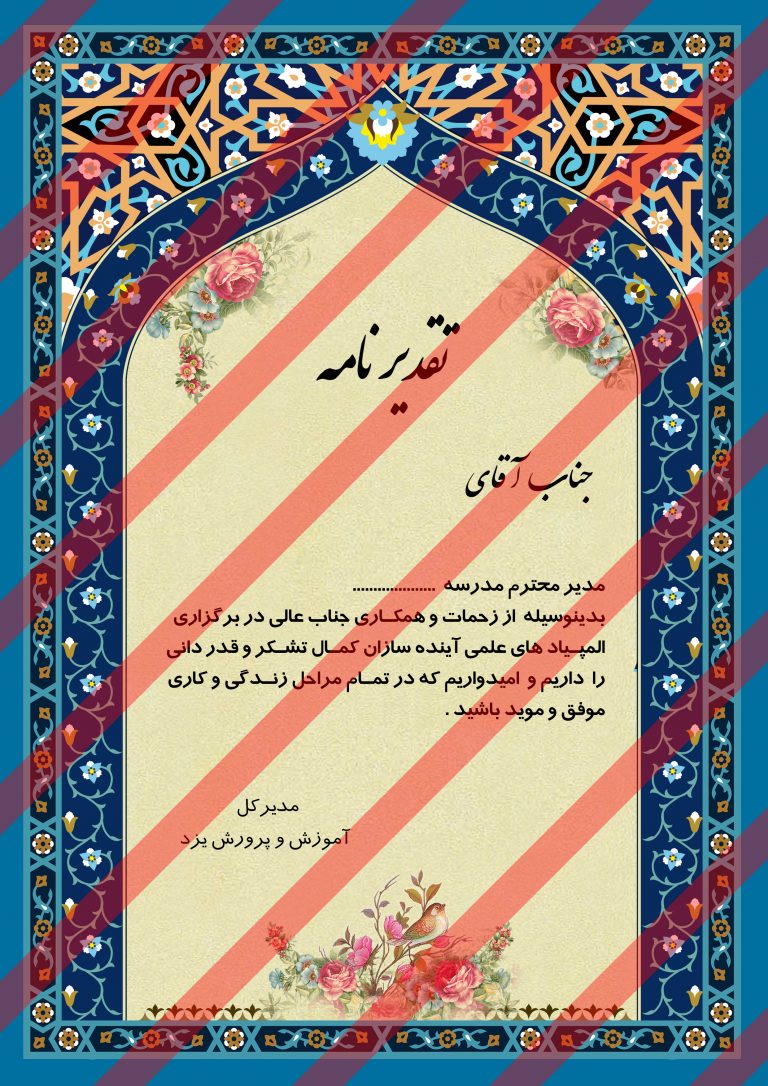 تقدیر نامه
جناب آقای
مدیر محترم مدرسه ....................
بدینوسیله از زحمات و همکاری جناب عالی در برگزاری
المپیاد های علمی آینده سازان کمال تشکر و قدر دانی
را داریم و امیدواریم که در تمام مراحل زندگی و کاری
موفق و موید باشید .
مدیر کل
آموزش و پرورش یزد